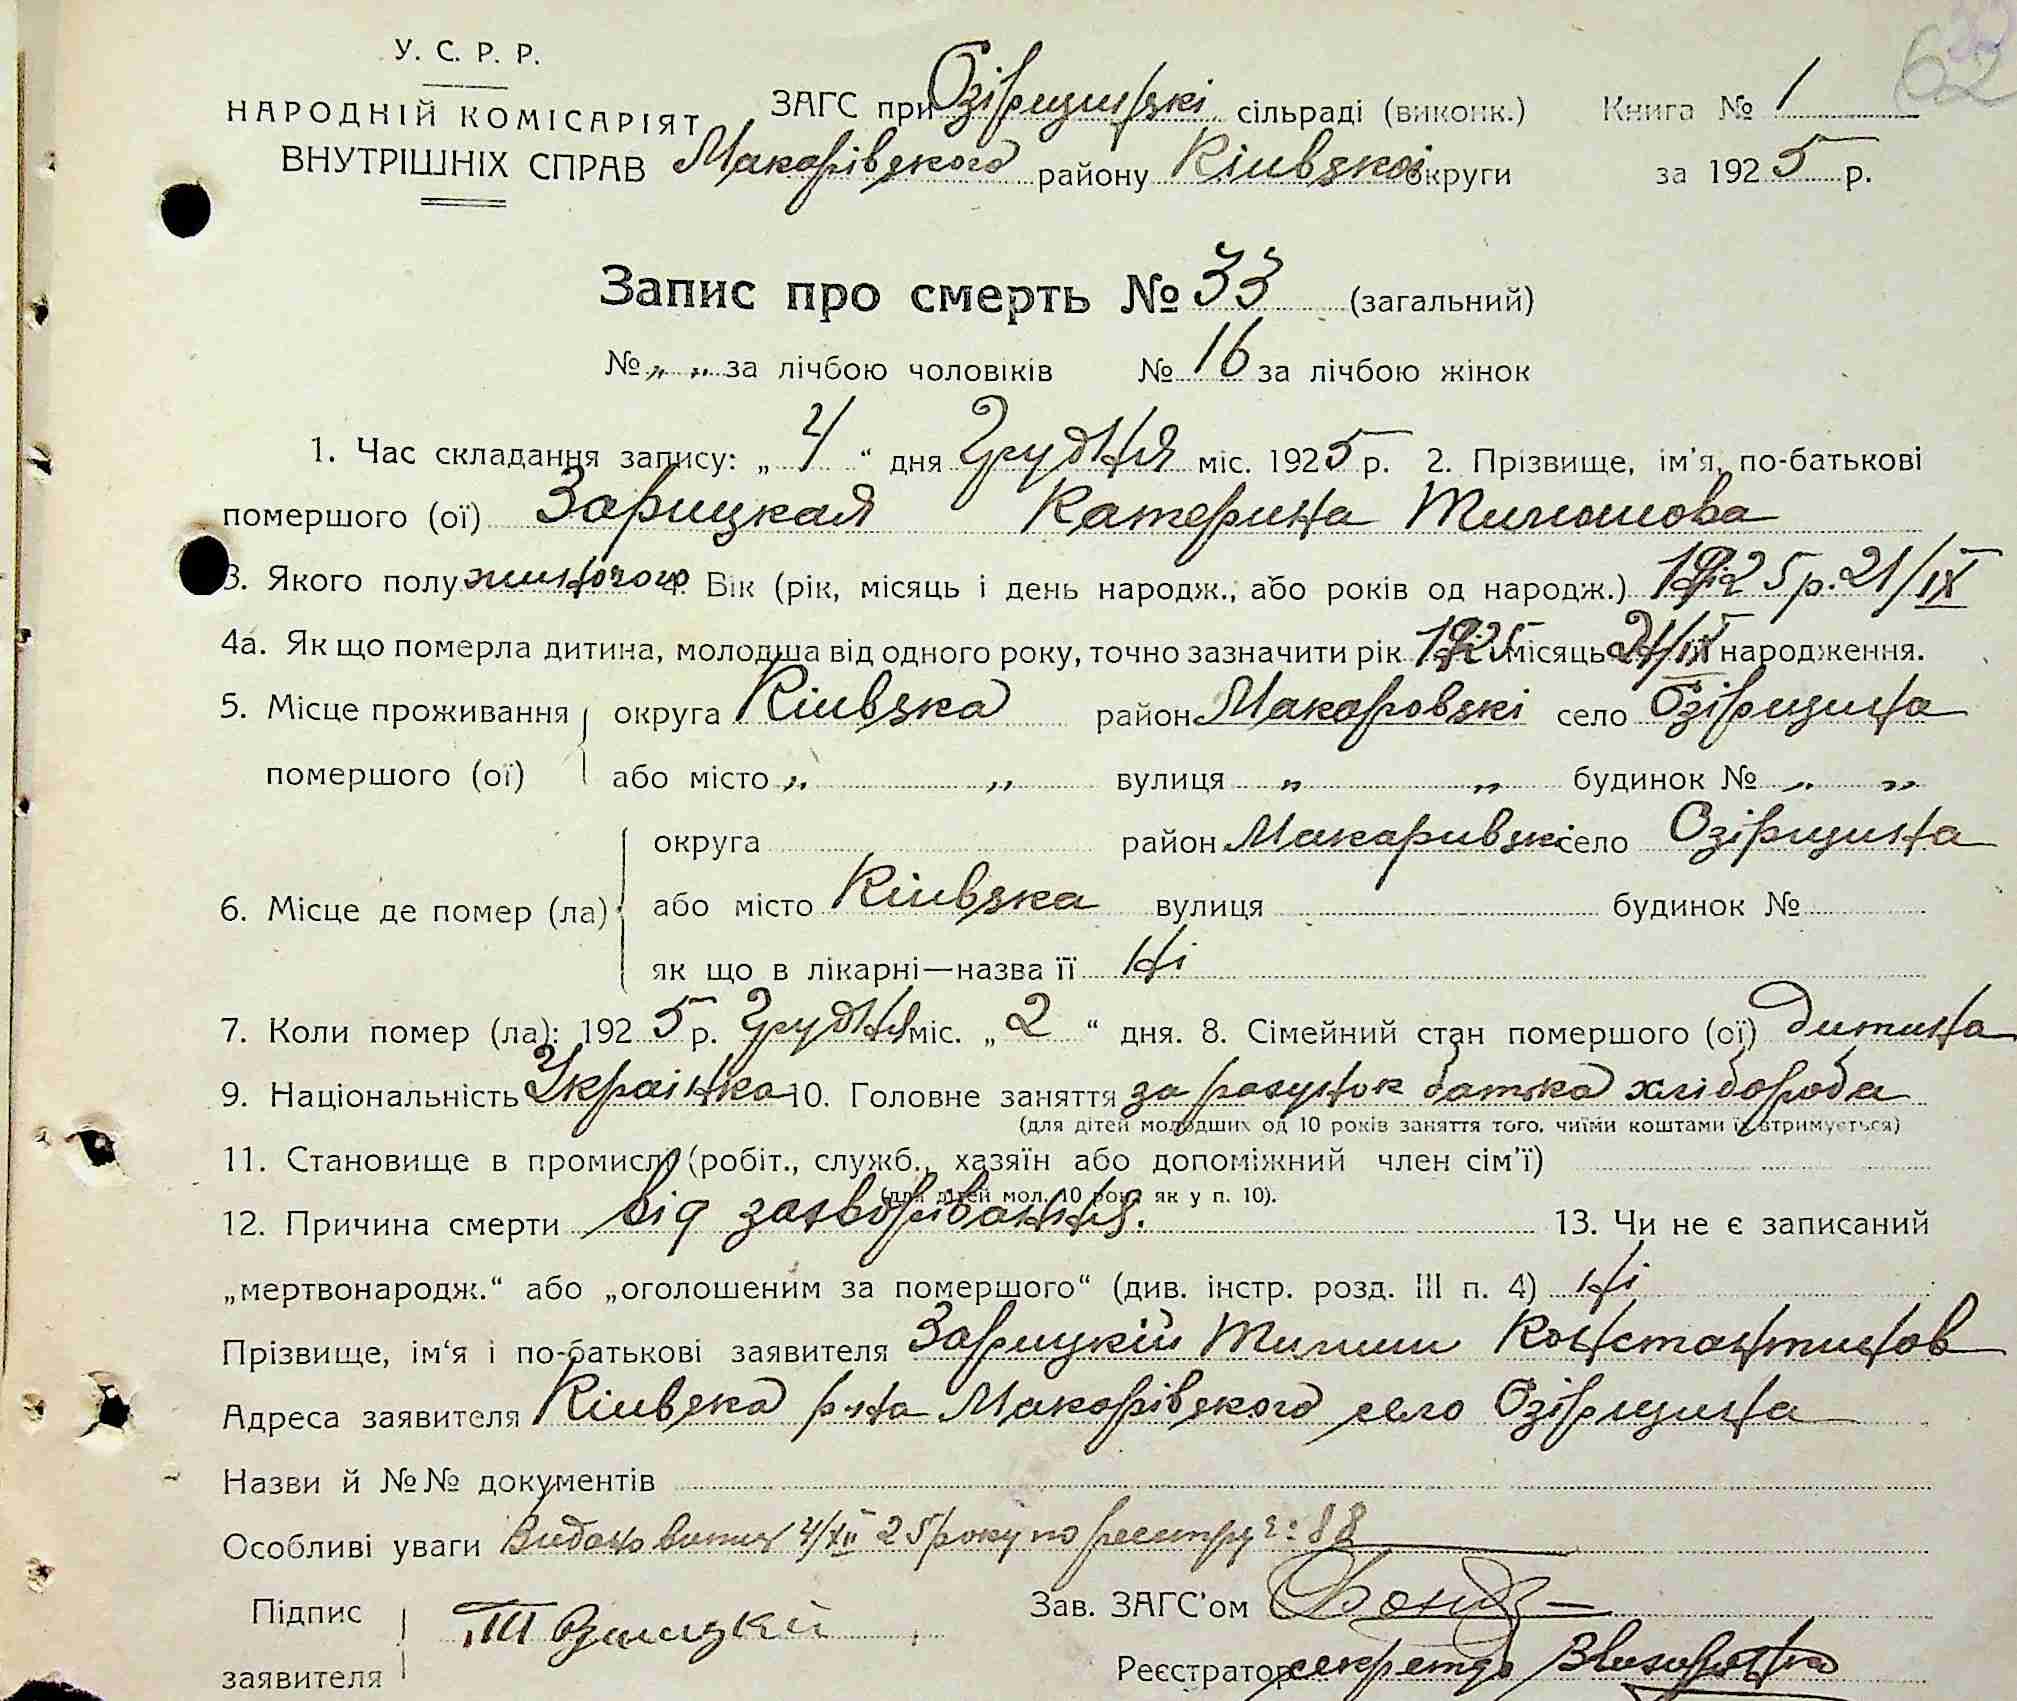 62
У. С. Р. Р.
НАРОДНІЙ КОМІСАРІЯТ
ВНУТРІШНІХ СПРАВ
ЗАГС при Озірщинскі сільраді (виконк.) Книга № 1
Макарівского району Кіивскоі округи за 1925 р.
Запис про смерть № 33 (загальний)
№ „ „ за лічбою чоловіків № 16 за лічбою жінок
1. Час складання запису: „ 4 “ дня Грудня міс. 1925 р. 2. Прізвище, ім'я, по-батькові
помершого (ої) Зарицкая Катерина Тимошова
3. Якого полу жиночого Вік (рік, місяць і день народж., або років од народж.) 1925 р. 21/IX
4а. Як що померла дитина, молодша від одного року, точно зазначити рік 1925 місяць 21/IX народження.
5. Місце проживання округа Кіивска район Макаровскі село Озірщина
помершого (ої) або місто „ „ вулиця „ „ будинок № „ „
округа район Макаривскі село Озірщина
6. Місце де помер (ла) або місто Кіивска вулиця будинок №
як що в лікарні—назва її Ні
7. Коли помер (ла): 1925 р. Грудня міс. „ 2 “ дня. 8. Сімейний стан помершого (ої) дитина
9. Національність Украінка 10. Головне заняття за рахунок батька хлібороба
(для дітей молодших од 10 років заняття того, чиїми коштами їх втримується)
11. Становище в промислі (робіт., служб., хазяїн або допоміжний член сім'ї)
(для дітей мол. 10 рок. як у п. 10).
12. Причина смерти від захворівання. 13. Чи не є записаний
„мертвонародж.“ або „оголошеним за помершого“ (див. інстр. розд. III п. 4) Ні
Прізвище, ім'я і по-батькові заявителя Зарицкій Тимиш Константинов
Адреса заявителя Кіивска р-на Макарівского село Озірщина
Назви й №№ документів
Особливі уваги Видано витяг 4/XII 25 року по реестру 88
Підпис
заявителя
Зав. ЗАГС'ом
Реєстратор секретар